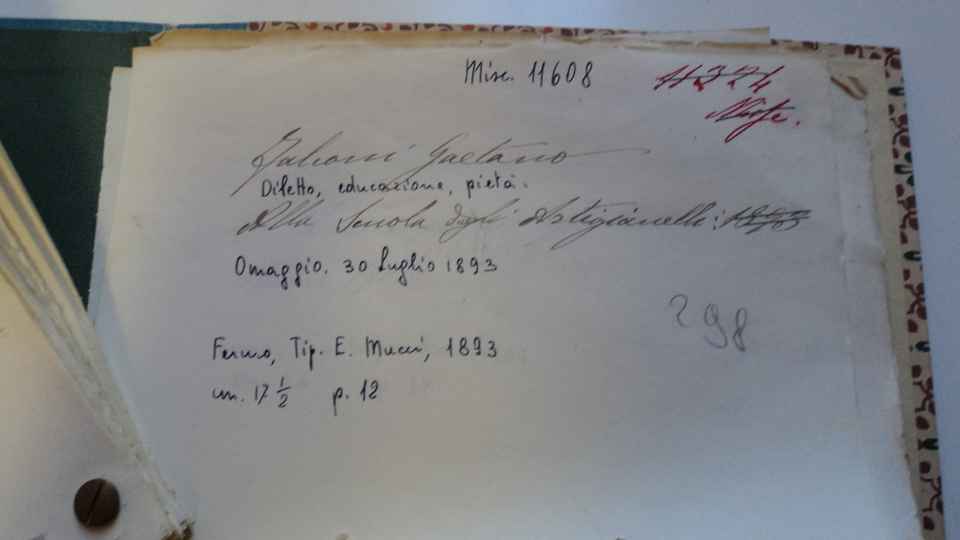 Misc. 11608
11374
Gaetano
Diletto, educazione, pietà.
Alla Scuola degli Artigianelli:
Omaggio. 30 Luglio 1893
298
Fermo, Tip. E. Mucci, 1893
cm. 17 1/2 p. 12